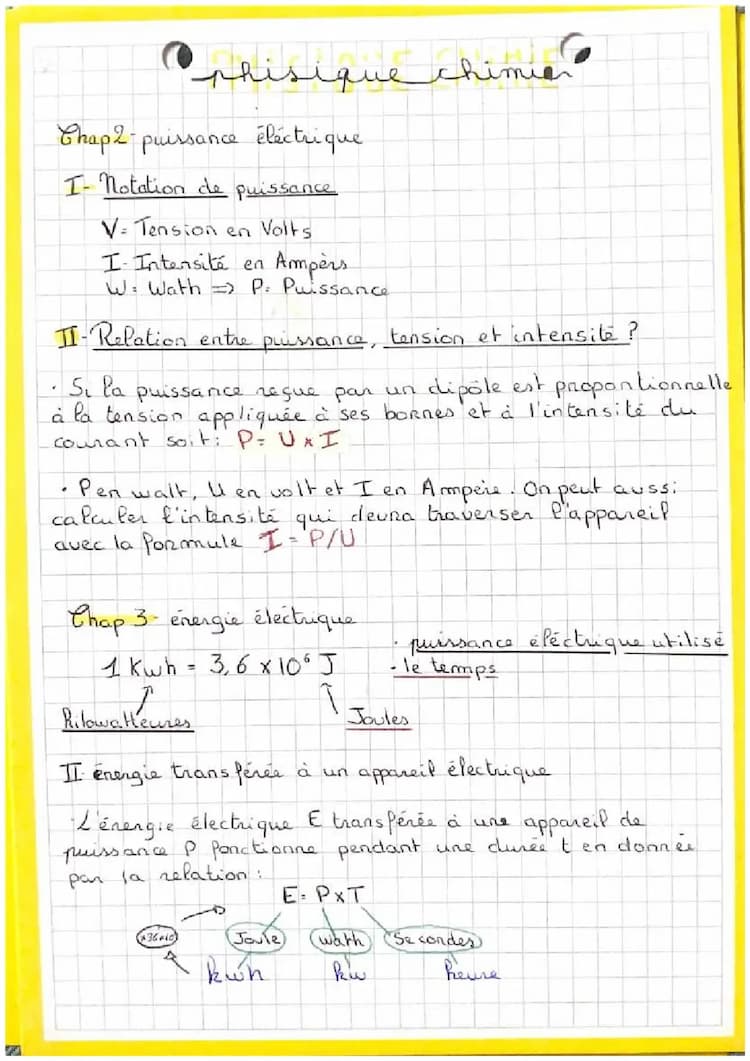 phisique chimie
Chap2- puissance éléctrique
I- Notation de puissance
V= Tension en Volts
I- Intensité en Ampèrs
W= Wath => P= Puissance
II- Relation entre puissance, tension et intensité ?
· Si la puissance reçue par un dipôle est proportionnelle
à la tension appliquée à ses bornes et à l'intensité du
courant soit: P= U x I
· P en walt, U en volt et I en Ampère. On peut aussi
calculer l'intensité qui devra traverser l'appareil
avec la formule I = P/U
Chap 3- énergie électrique
· puissance éléctrique utilisé
1 Kwh = 3,6 x 10⁶ J
- le temps
Kilowattheures
Joules
II- énergie transférée à un appareil électrique
L'énergie électrique E transférée à une appareil de
puissance P fonctionne pendant une durée t en donnée
par la relation :
E= PxT
Joule wath Secondes
kwh kw heure